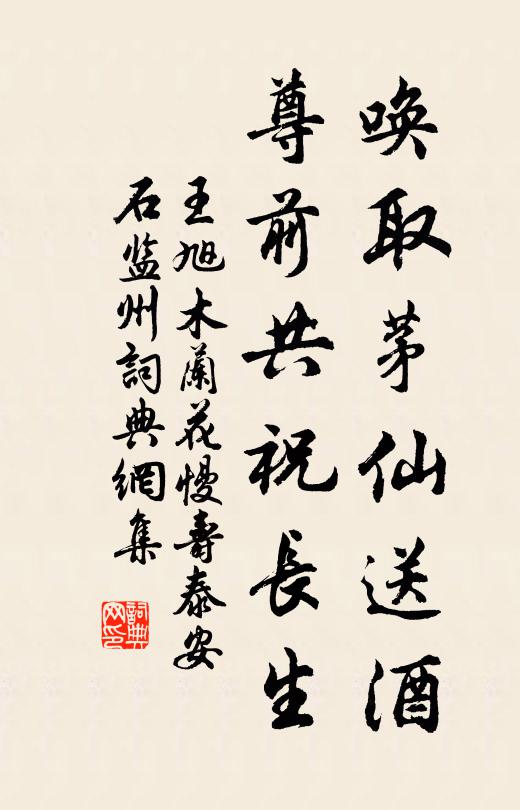 喚取茅仙送酒
尊前共祝長生
王旭木蘭花慢壽泰安
石監州詞典網集
詞典
网印